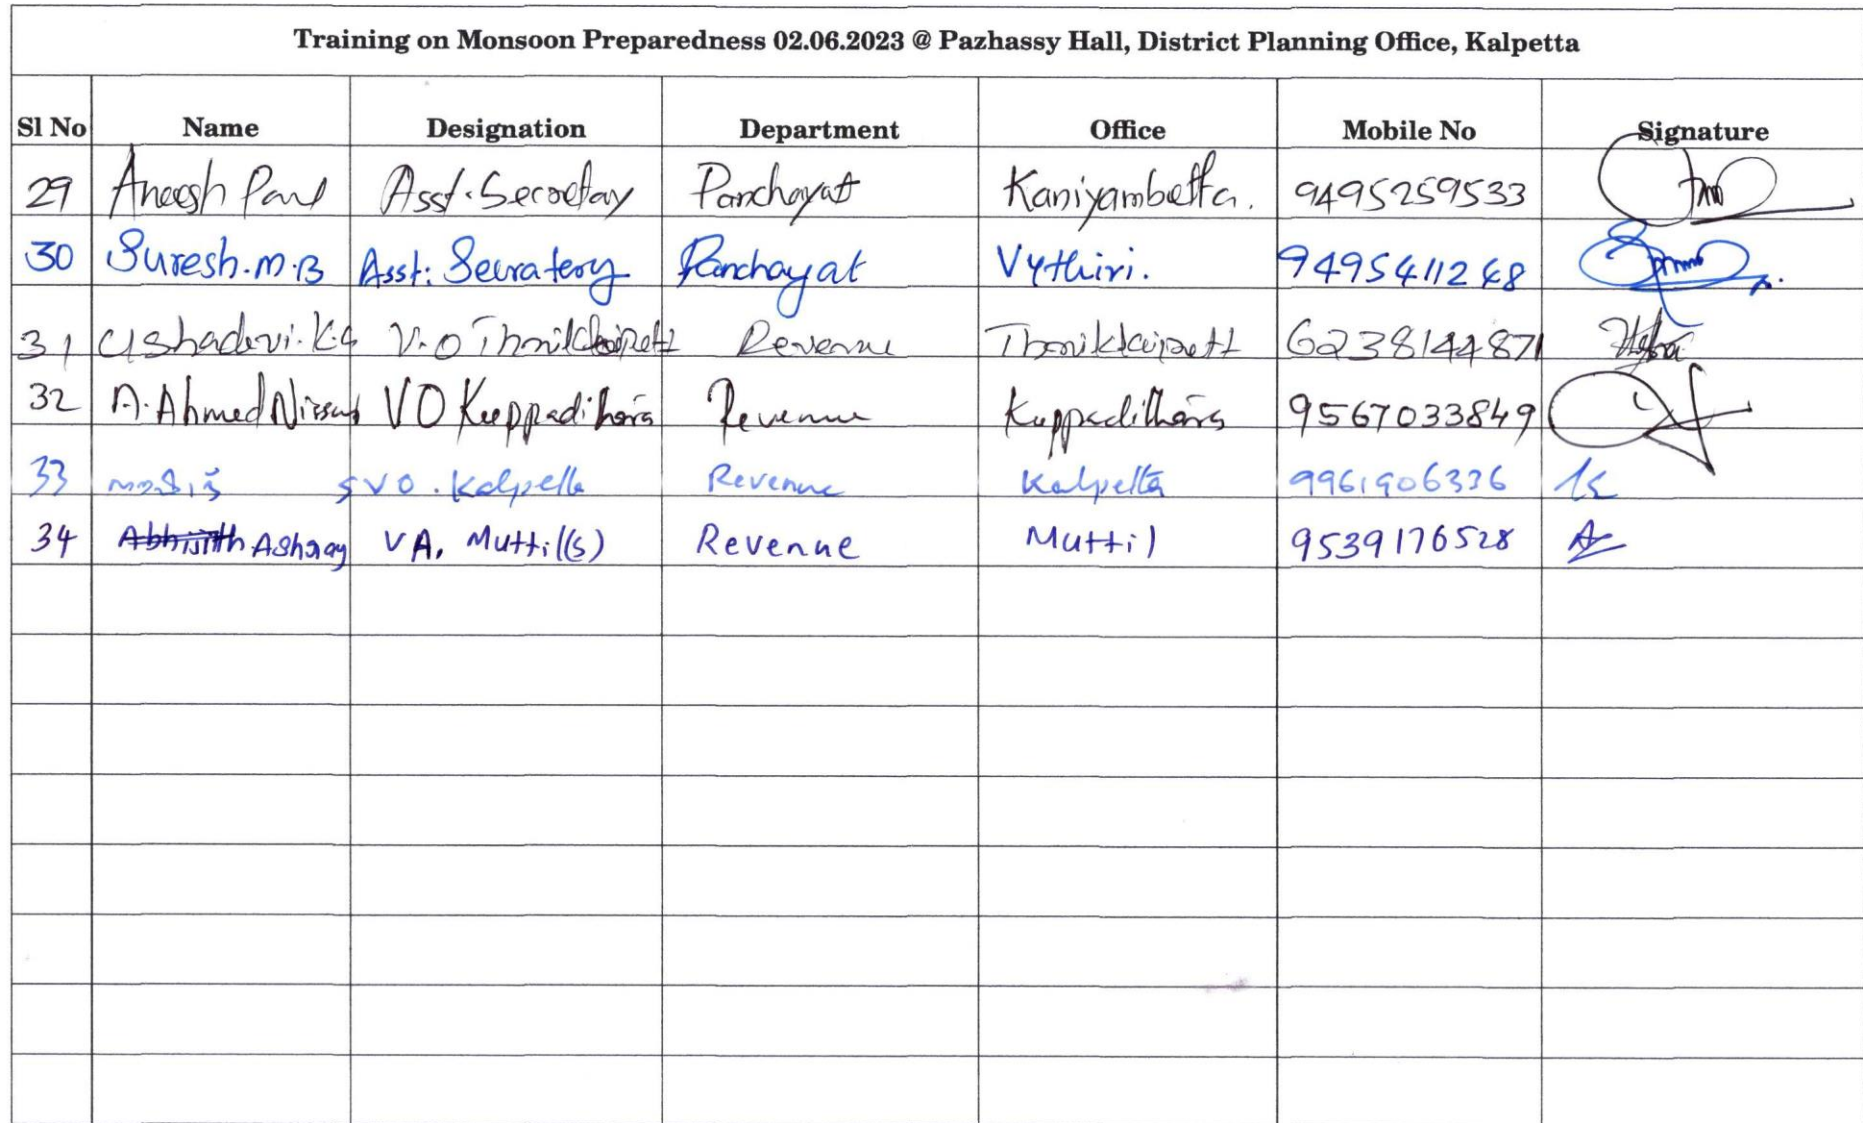 Training on Monsoon Preparedness 02.06.2023 @ Pazhassy Hall, District Planning Office, Kalpetta
Sl No Name Designation Department Office Mobile No Signature
29 Aneesh Paul Asst. Secretary Panchayat Kaniyambetta. 9495259533
30 Suresh.M.B Asst: Secratery Panchayat Vythiri. 9495411248
31 Ushadevi. K.G V.O Revenue 6238144871
32 A. Ahmed Nissar VO Kuppadithara Revenue Kuppadithara 9567033849
33 SVO. Kalpetta Revenue Kalpetta 9961906336
34 Abhijith Ashray VA, Muttil(s) Revenue Muttil 9539176528